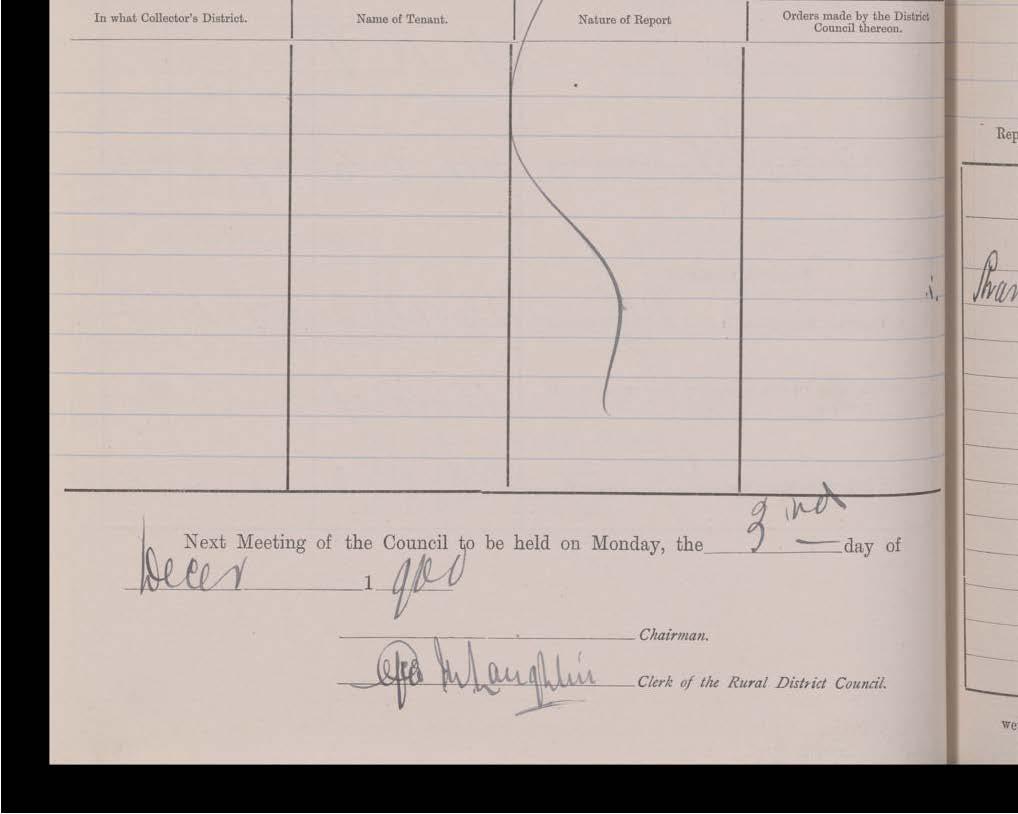 In what Collector's District. Name of Tenant. Nature of Report Orders made by the District
Council thereon.
Rep
i. Shan
Next Meeting of the Council to be held on Monday, the 3 ind day of
Decer 1900
Chairman.
McLaughlin Clerk of the Rural District Council.
we